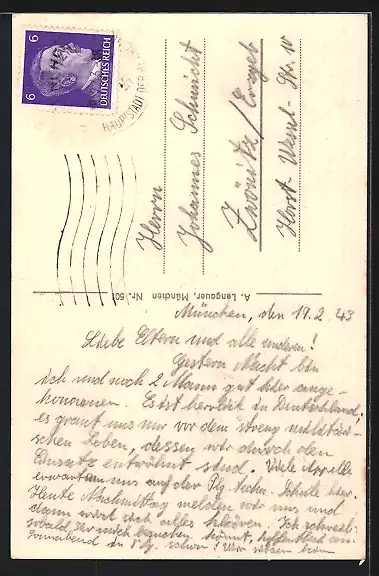 6 6
DEUTSCHES REICH
MÜNCHEN
HAUPTSTADT DER
Herrn
Johannes Schmidt
Zwönitz / Erzgeb
Horst-Wessel-Str. 10
A. Lengauer, München Nr. 50
München, den 19.2.43
Liebe Eltern und alle anderen!
Gestern Nacht bin
ich und noch 2 Mann gut hier ange-
kommen. Es ist herrlich in Deutschland,
es graut uns nur vor dem streng militäri-
schen Leben, dessen wir durch den
Einsatz entwöhnt sind. Viele Appelle
erwarten uns auf der Flg. techn. Schule hier.
Heute Nachmittag melden wir uns und
dann wird sich alles klären. Ich schreib
sobald Ihr mich besuchen könnt, hoffentlich am
Sonnabend schon! Wir sitzen beim